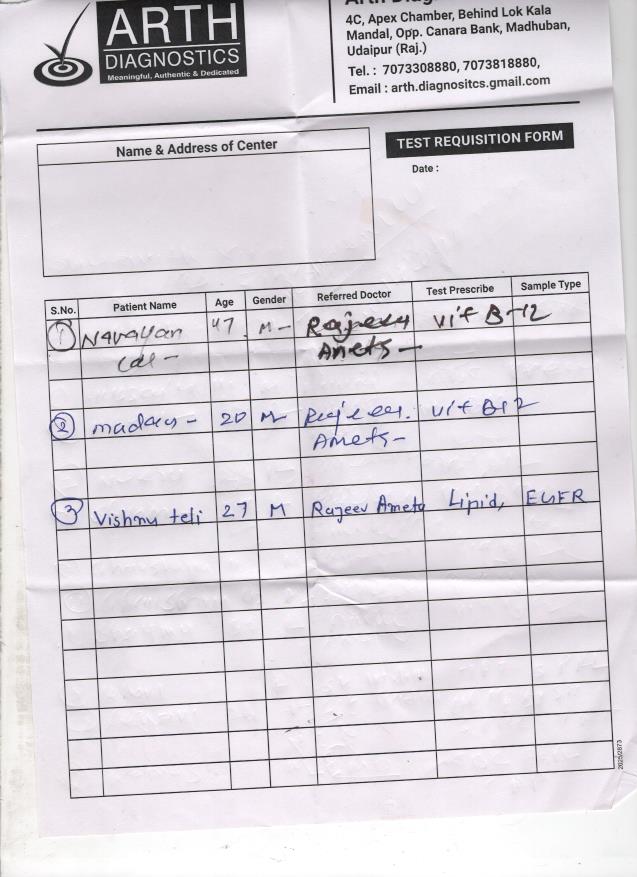 ARTH
DIAGNOSTICS
Meaningful, Authentic & Dedicated
4C, Apex Chamber, Behind Lok Kala
Mandal, Opp. Canara Bank, Madhuban,
Udaipur (Raj.)
Tel. : 7073308880, 7073818880,
Email : arth.diagnositcs.gmail.com
Name & Address of Center
TEST REQUISITION FORM
Date :
S.No. Patient Name Age Gender Referred Doctor Test Prescribe Sample Type
1 Narayan 47 M- Rajeev vit B-12
Lal - Ameta -
2 20 M Rajeev. vit B12
Ameta -
3 Vishnu teli 27 M Rajeev Ameta Lipid, EGFR
2025/2873